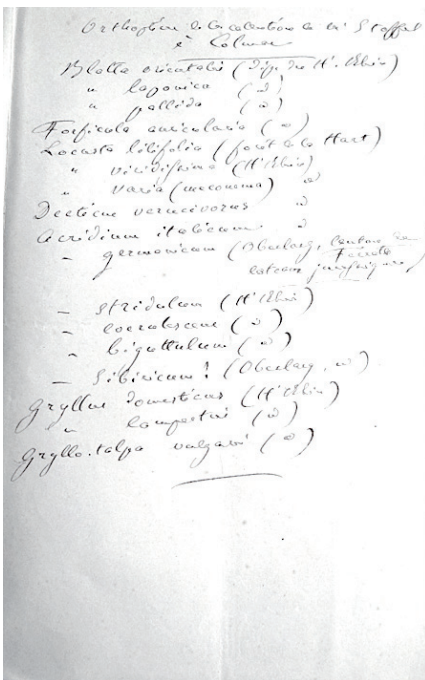 Orthoptères de la collection de Mr Stoffel
à Colmar
Blatta orientalis (Dép. du Ht. Rhin)
" laponica (id)
" pallida (id)
Forficula auricularia (id)
Locusta lilifolia (forêt de la Hart)
" viridissima (Ht Rhin)
" varia (meconema) id
Decticus verrucivorus id
Acridium italicum id
– germanicum (Oberlarg, canton de
Ferrette
coteau jurassique)
– stridulum (Ht Rhin)
– coerulescens (id)
– biguttulum (id)
– Sibiricum ! (Oberlarg, id)
Gryllus domesticus (Ht Rhin)
" campestris (id)
Gryllo-talpa vulgaris (id)